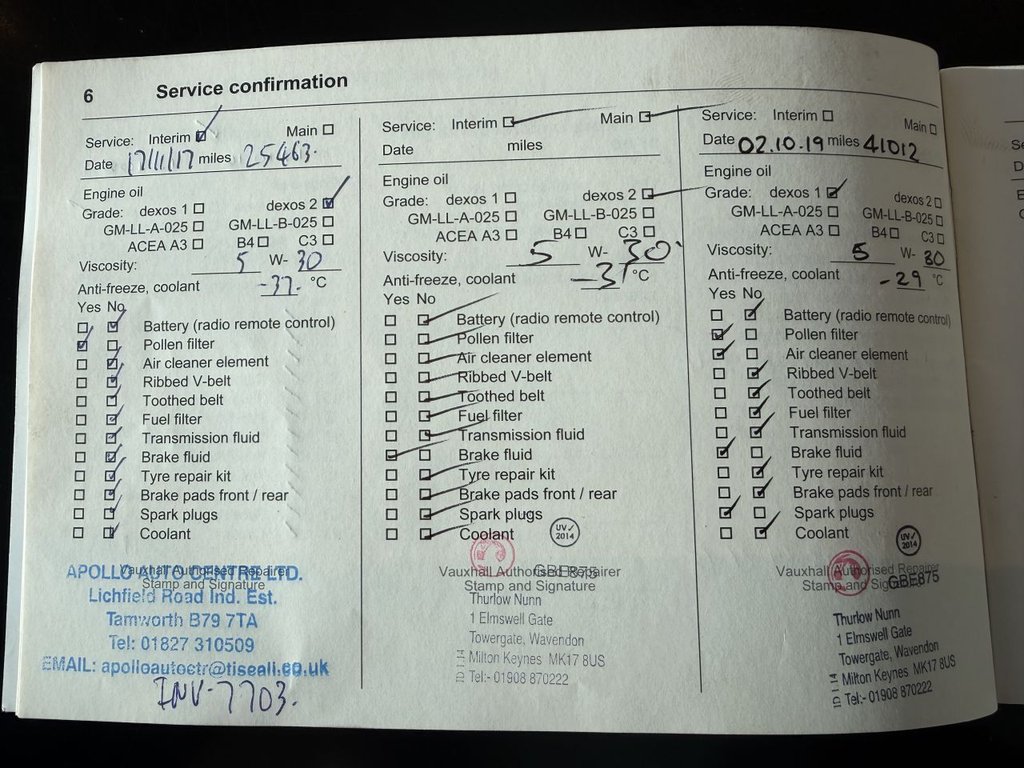 6 Service confirmation
Service: Interim Main
Date 17/11/17 miles 25463.
Engine oil
Grade: dexos 1 dexos 2
GM-LL-A-025 GM-LL-B-025
ACEA A3 B4 C3
Viscosity: 5 W- 30
Anti-freeze, coolant -37. °C
Yes No
Battery (radio remote control)
Pollen filter
Air cleaner element
Ribbed V-belt
Toothed belt
Fuel filter
Transmission fluid
Brake fluid
Tyre repair kit
Brake pads front / rear
Spark plugs
Coolant
Vauxhall Authorised Repairer
Stamp and Signature
APOLLO AUTO CENTRE LTD.
Lichfield Road Ind. Est.
Tamworth B79 7TA
Tel: 01827 310509
EMAIL: apolloautoctr@tiscali.co.uk
INV-7703.
Service: Interim Main
Date miles
Engine oil
Grade: dexos 1 dexos 2
GM-LL-A-025 GM-LL-B-025
ACEA A3 B4 C3
Viscosity: 5 W- 30
Anti-freeze, coolant -31 °C
Yes No
Battery (radio remote control)
Pollen filter
Air cleaner element
Ribbed V-belt
Toothed belt
Fuel filter
Transmission fluid
Brake fluid
Tyre repair kit
Brake pads front / rear
Spark plugs
Coolant
UV 2014
Vauxhall Authorised Repairer
GBE875
Stamp and Signature
Thurlow Nunn
1 Elmswell Gate
Towergate, Wavendon
Milton Keynes MK17 8US
Tel:- 01908 870222
ID 1 14
Service: Interim Main
Date 02.10.19 miles 41012
Engine oil
Grade: dexos 1 dexos 2
GM-LL-A-025 GM-LL-B-025
ACEA A3 B4 C3
Viscosity: 5 W- 30
Anti-freeze, coolant -29 °C
Yes No
Battery (radio remote control)
Pollen filter
Air cleaner element
Ribbed V-belt
Toothed belt
Fuel filter
Transmission fluid
Brake fluid
Tyre repair kit
Brake pads front / rear
Spark plugs
Coolant
UV 2014
Vauxhall Authorised Repairer
Stamp and Signature
GBE875
Thurlow Nunn
1 Elmswell Gate
Towergate, Wavendon
Milton Keynes MK17 8US
Tel:- 01908 870222
ID 1 14